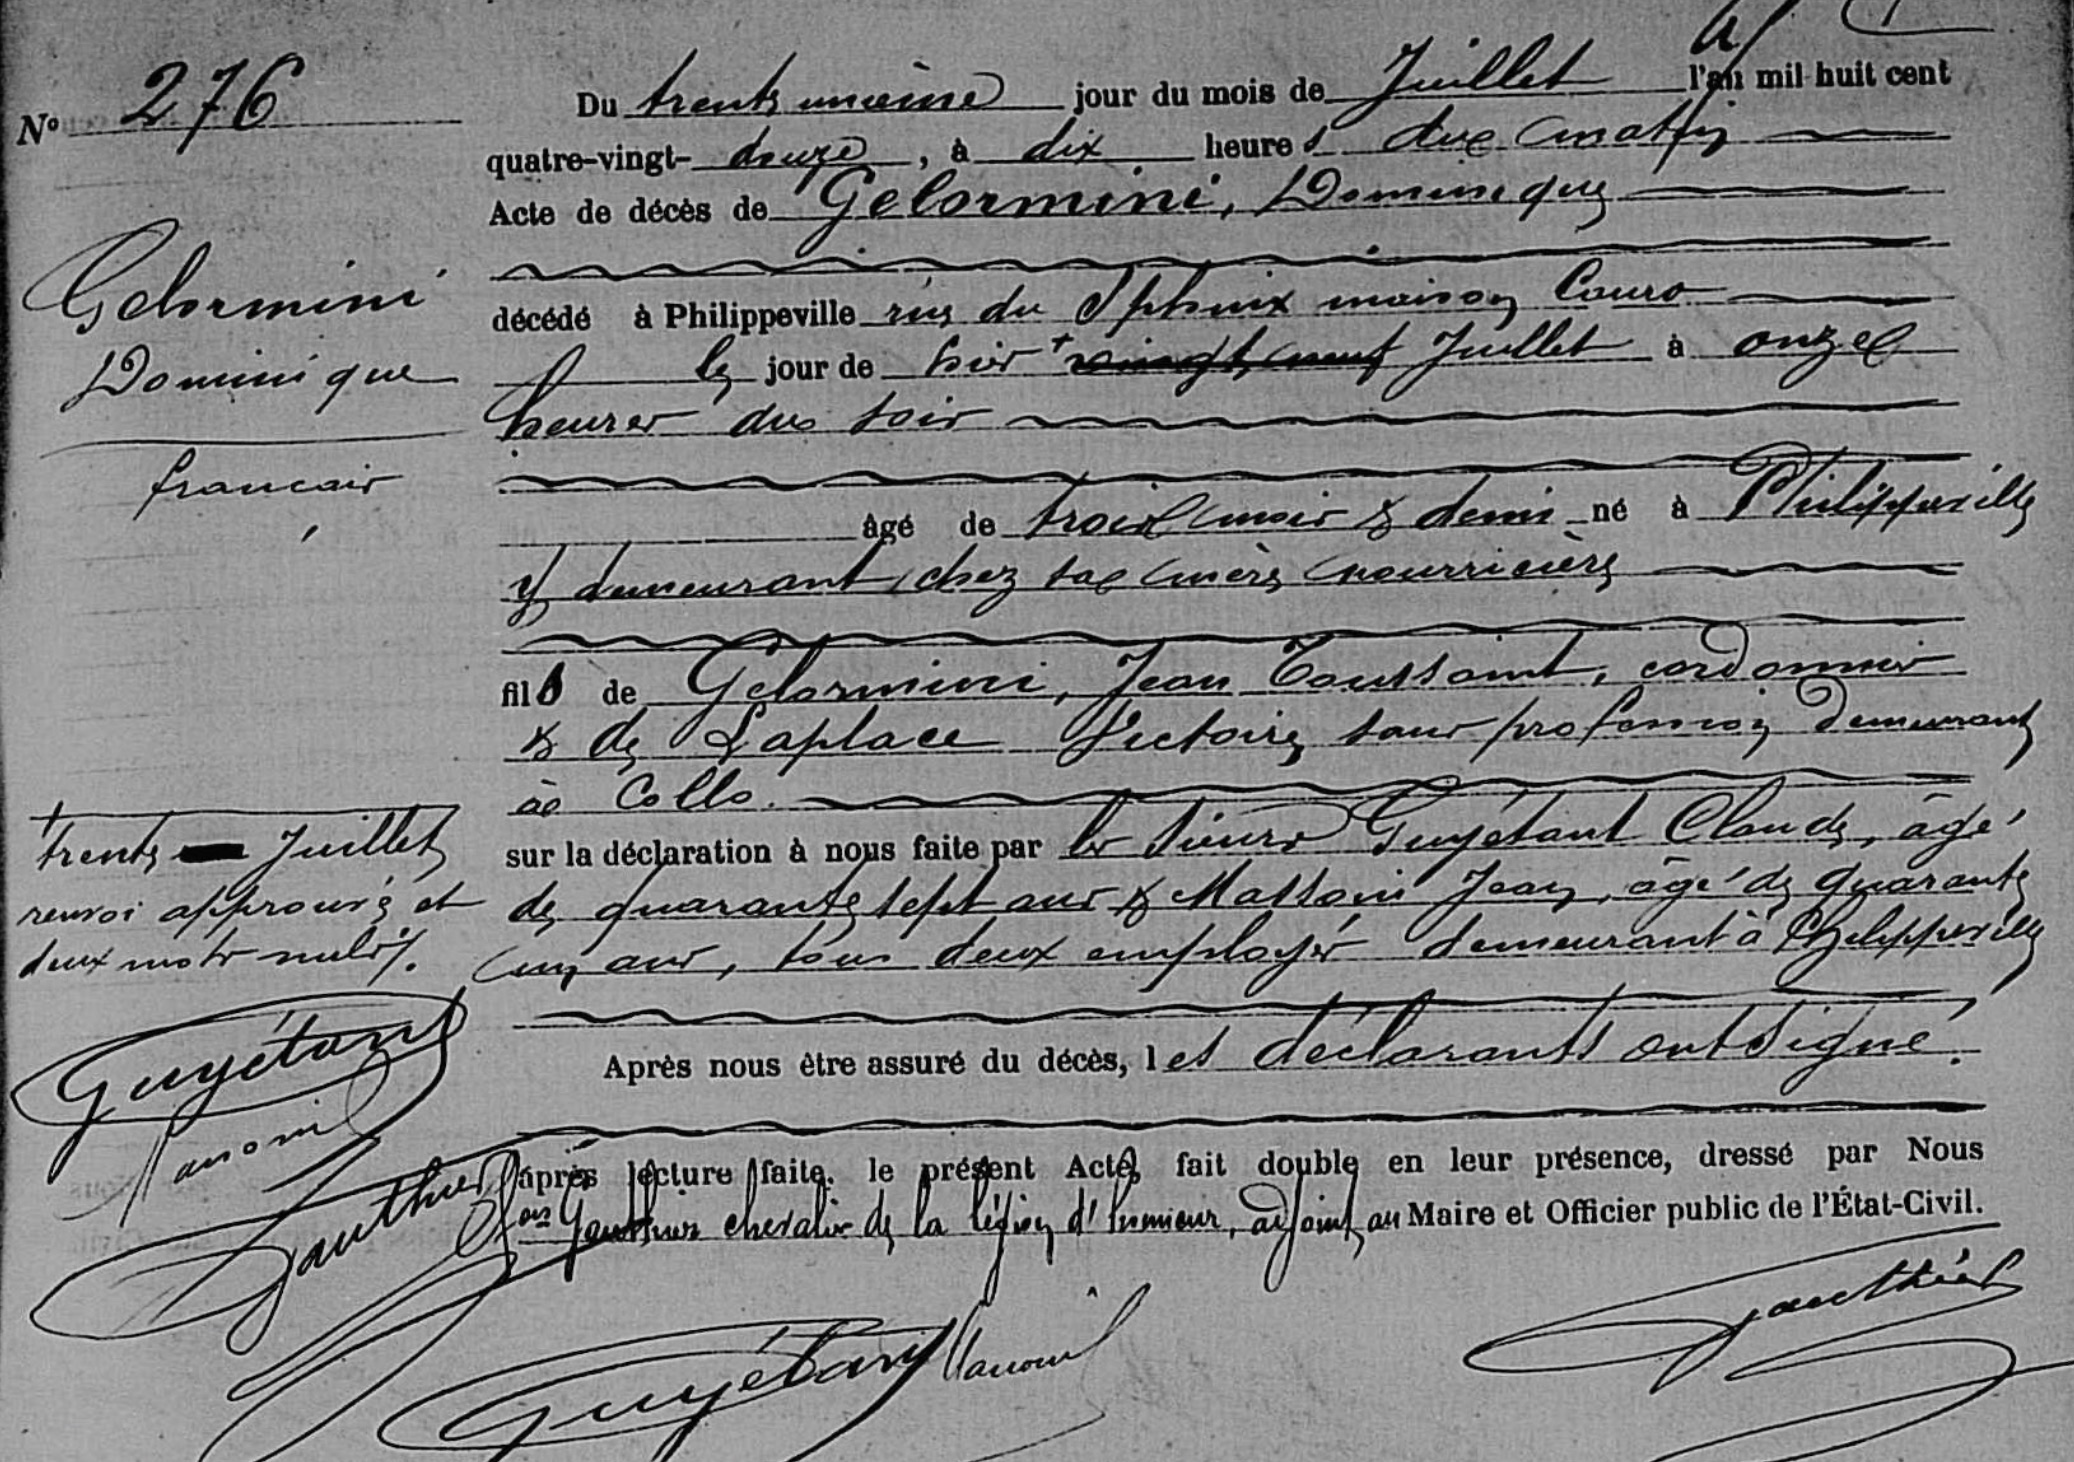 N° 276
Du trente unième jour du mois de Juillet l'an mil huit cent
quatre-vingt-douze, à dix heures du matin
Acte de décès de Gelormini, Dominique
décédé à Philippeville rue du Sphinx maison Couro
le jour de hier + vingt neuf Juillet à onze
heures du soir
âgé de trois mois & demi né à Philippeville
y demeurant, chez sa mère nourricière
fils de Gelormini, Jean Toussaint, cordonnier
& de Laplace Victoire sans profession demeurant
à Collo.
sur la déclaration à nous faite par les sieurs Guyétant Claude, âgé
de quarante sept ans & Massoni Jean, âgé de quarante
cinq ans, tous deux employés demeurant à Philippeville
Après nous être assuré du décès, les déclarants ont signé.
après lecture faite. le présent Acte, fait double en leur présence, dressé par Nous
Gauthier chevalier de la légion d'honneur, adjoint au Maire et Officier public de l'État-Civil.
Gelormini
Dominique
français
+
trente Juillet
renvoi approuvé et
deux mots nuls.
Guyétant
Gauthier
Guyétant
Gauthier